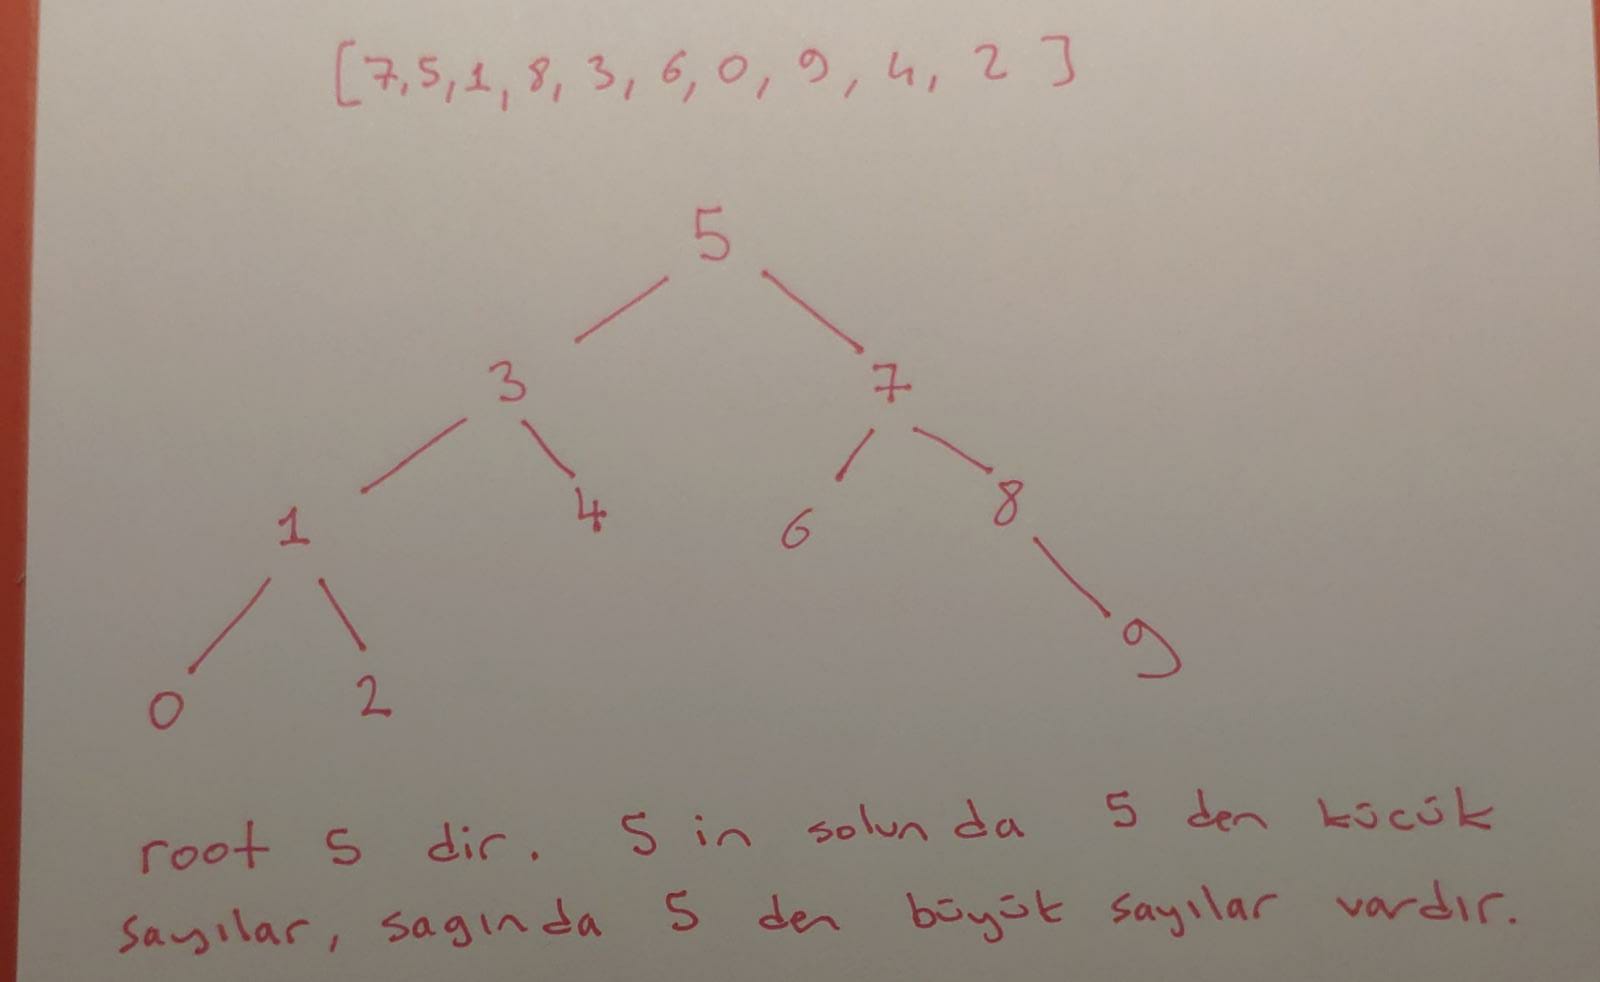 [7,5,1,8,3,6,0,9,4,2]
5
3 7
1 4 6 8
0 2 9
root 5 dir. 5 in solunda 5 den kücük
sayılar, sagında 5 den büyük sayılar vardır.